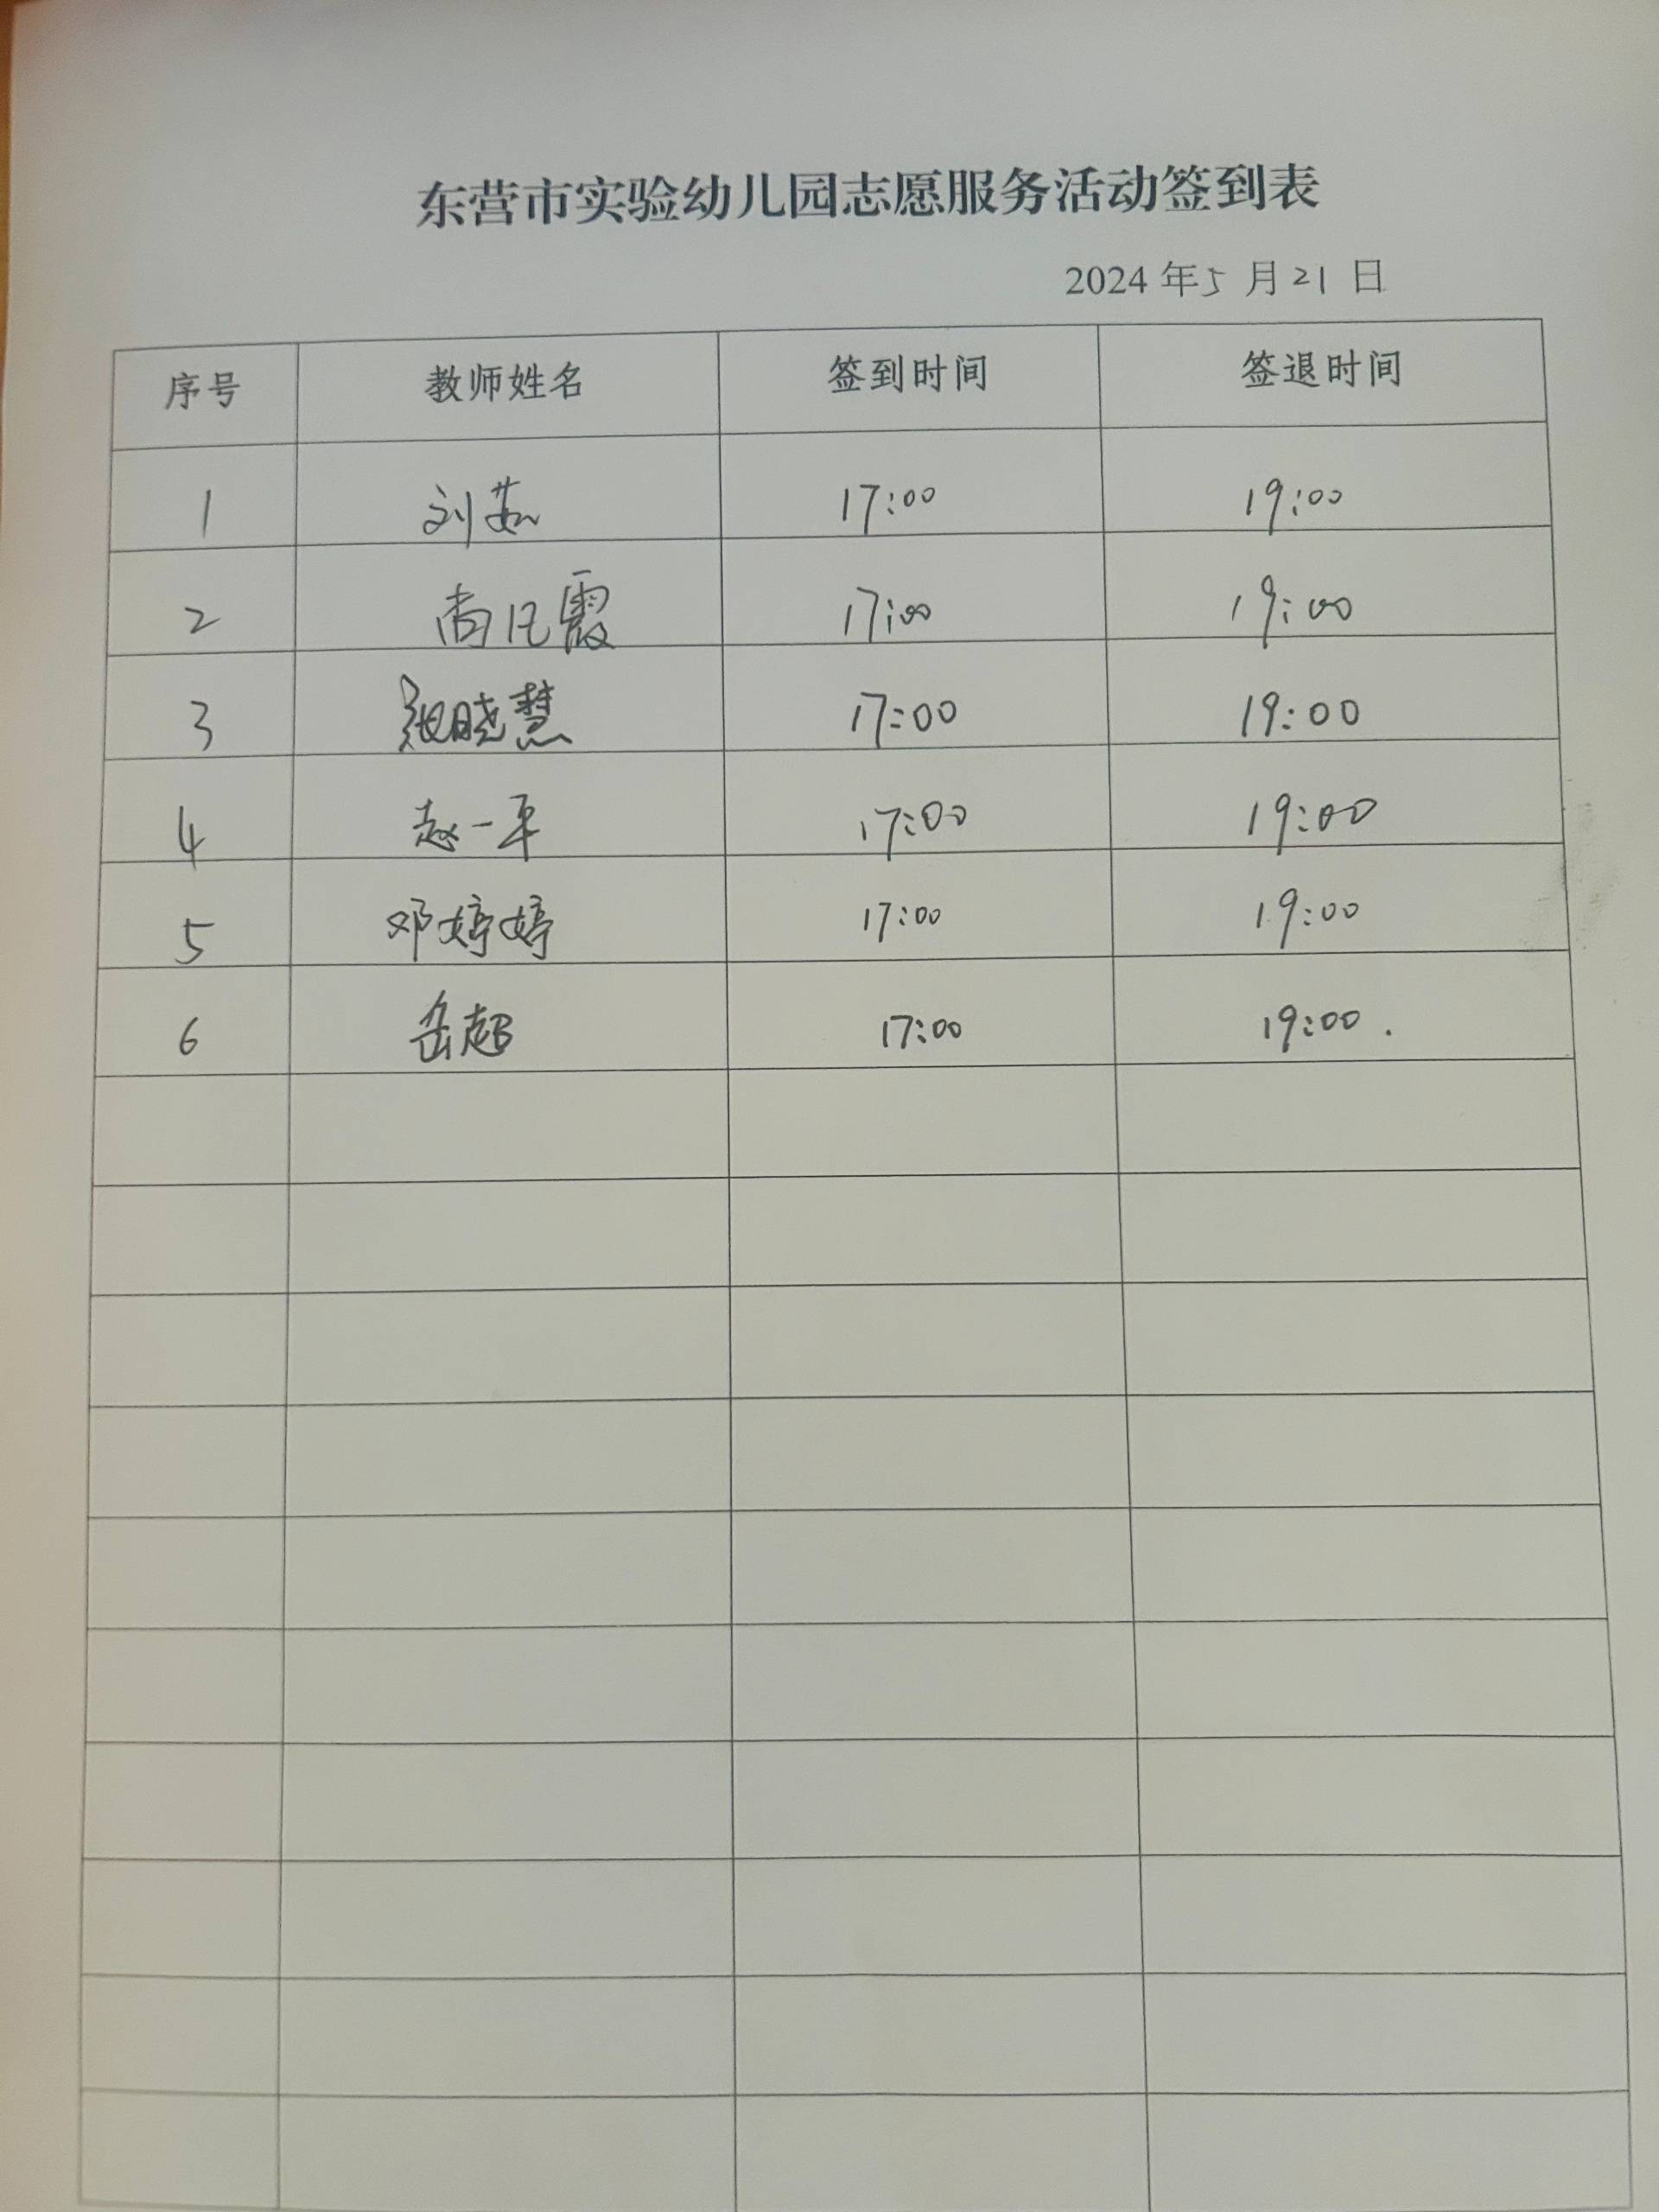 东营市实验幼儿园志愿服务活动签到表
2024 年 5 月 21 日
序号 教师姓名 签到时间 签退时间
1 刘茹 17:00 19:00
2 17:00 19:00
3 张晓慧 17:00 19:00
4 赵一平 17:00 19:00
5 邓婷婷 17:00 19:00
6 岳超 17:00 19:00.